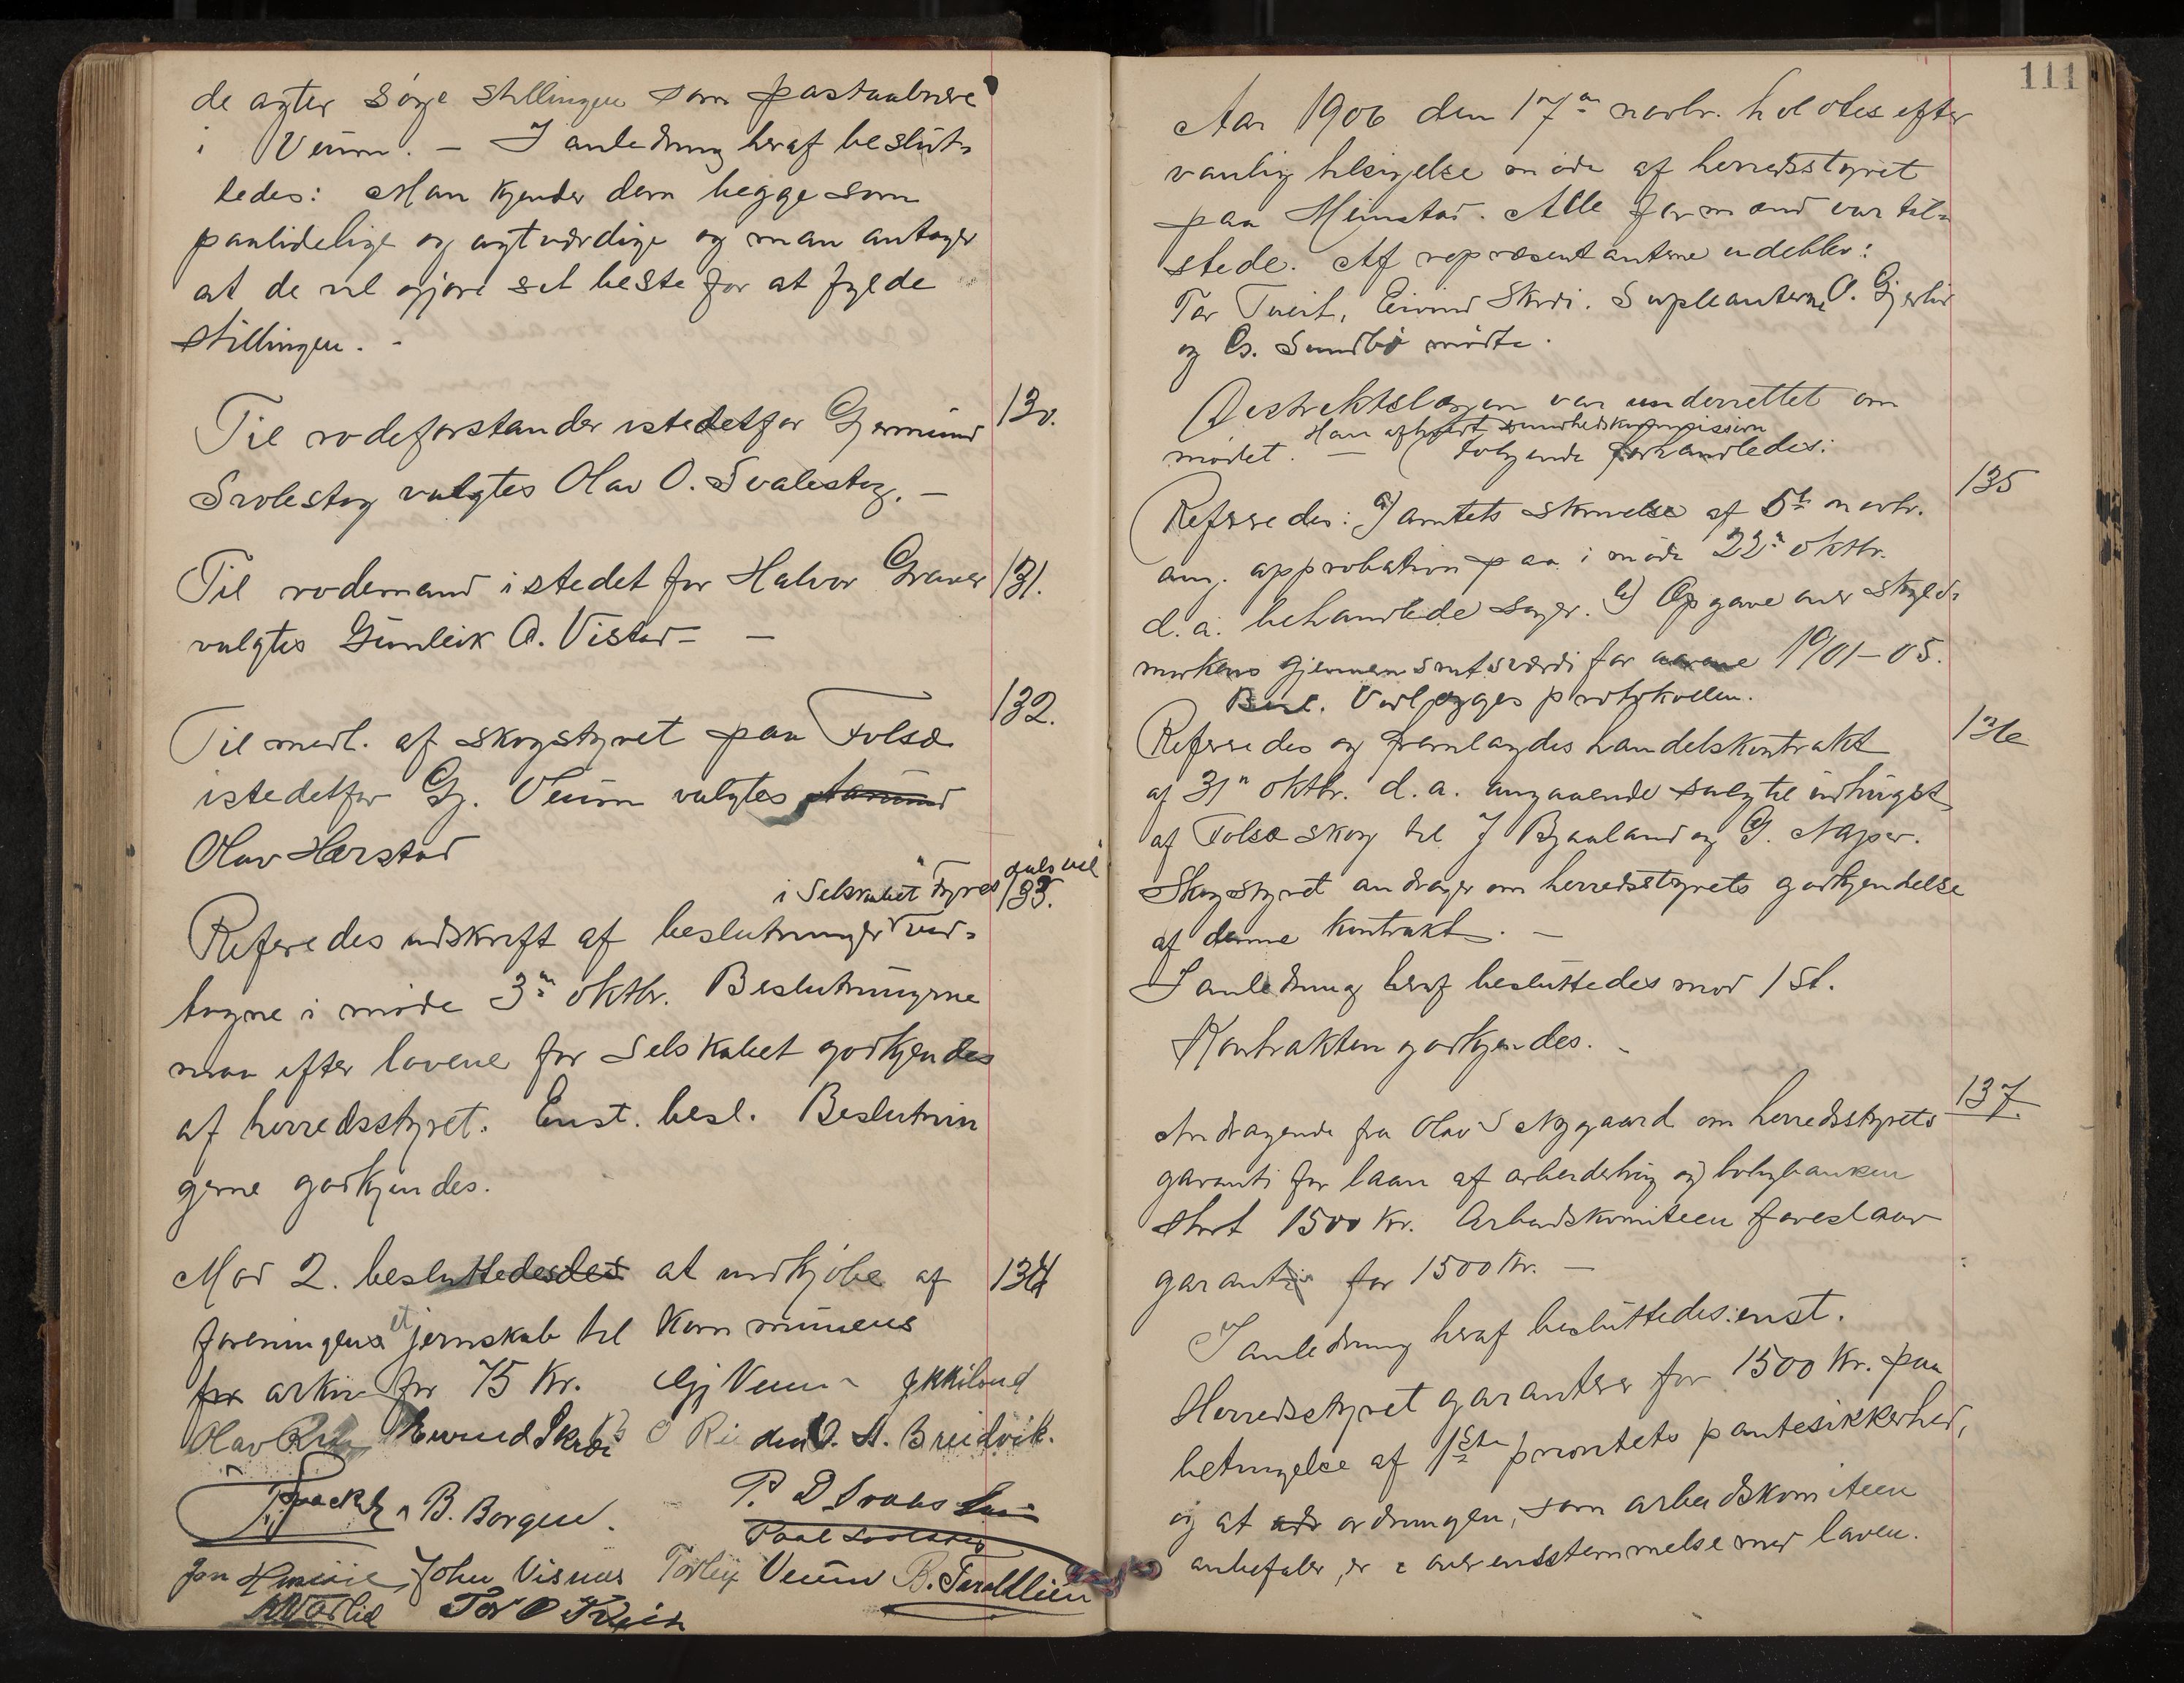 de agter søge stillingen som postaabnere
i Veum. – I anledning heraf beslut-
tedes: Man kjender dem begge som
paalidelige og agtværdige og man antager
at de vil gjøre sit beste for at fylde
stillingen. –
Til rodeforstander istedetfor Gjermund 130.
Svalestog valgtes Olav O. Svalestog. –
Til rodemand istedet for Halvor Graver 131.
valgtes Gunleik A. Vistad – –
Til medl. af skogstyret paa Folsæ 132.
istedetfor Gj. Veum valgtes Aamund
Olav Hærstad
i Selskabet "Dyres 133.
Referedes udskrift af beslutninger ved-
tagne i møde 3die oktbr. Beslutningerne
maa efter lovene for Selskabet godkjendes
af herredsstyret. Enst. besl. Beslutnin
gerne godkjendes.
Mod 2. besluttedesdes at indkjøbe af 134
foreningens et jernskab til kommunens
for arkiv for 75 Kr. Gj Veum
Olav Eivind Skrdi O. A. Breidvik.
B. Borgen. P. D
Jon John Visnes Torleif Veum B.
Tor O Tveit
111
Aar 1906 den 17de novbr. holdtes efter
vanlig tilsigelse møde af herredsstyret
paa Heimstad. Alle formænd var til-
stede. Af repræsentanterne udeblev:
Tor Tveit, Eivind Skrdi. Supleanterne O. Gjerlid
og Es. Sundbø mødte.
Distriktslægen var underrettet om
Han afholdt sundhedskommission
mødet. – Følgende forhandledes:
135
Referedes: a) amtets skrivelse af 5te novbr.
ang. approbation paa i møde 22de oktbr.
d. a. behandlede sager. b) Opgave over skyld-
markens gjennemsnitsværdi for aarene 1901–05.
Besl. Vedlægges protokollen.
Referedes og fremlagdes handelskontrakt 136
af 31te oktbr. d. a. angaaende salg til indhugst
af Folsæ skog til J Bjaaland og G. Naper.
Skogstyret andrager om herredsstyrets godkjendelse
af denne kontrakt. –
I anledning heraf besluttedes mod 1 St.
Kontrakten godkjendes. –
137
Andragende fra Olav S Nygaard om herredsstyrets
garanti for laan af arbeiderbrug og boligbanken
stort 1500 Kr. Arbeidskomiteen foreslaar
garanti for 1500 Kr. –
I anledning heraf besluttedes: enst.
Herredsstyret garanterer for 1500 Kr. paa
betingelse af 1ste prioritets pantesikkerhed,
og at ordningen, som arbeidskomiteen
anbefaler, er i overensstemmelse med loven.